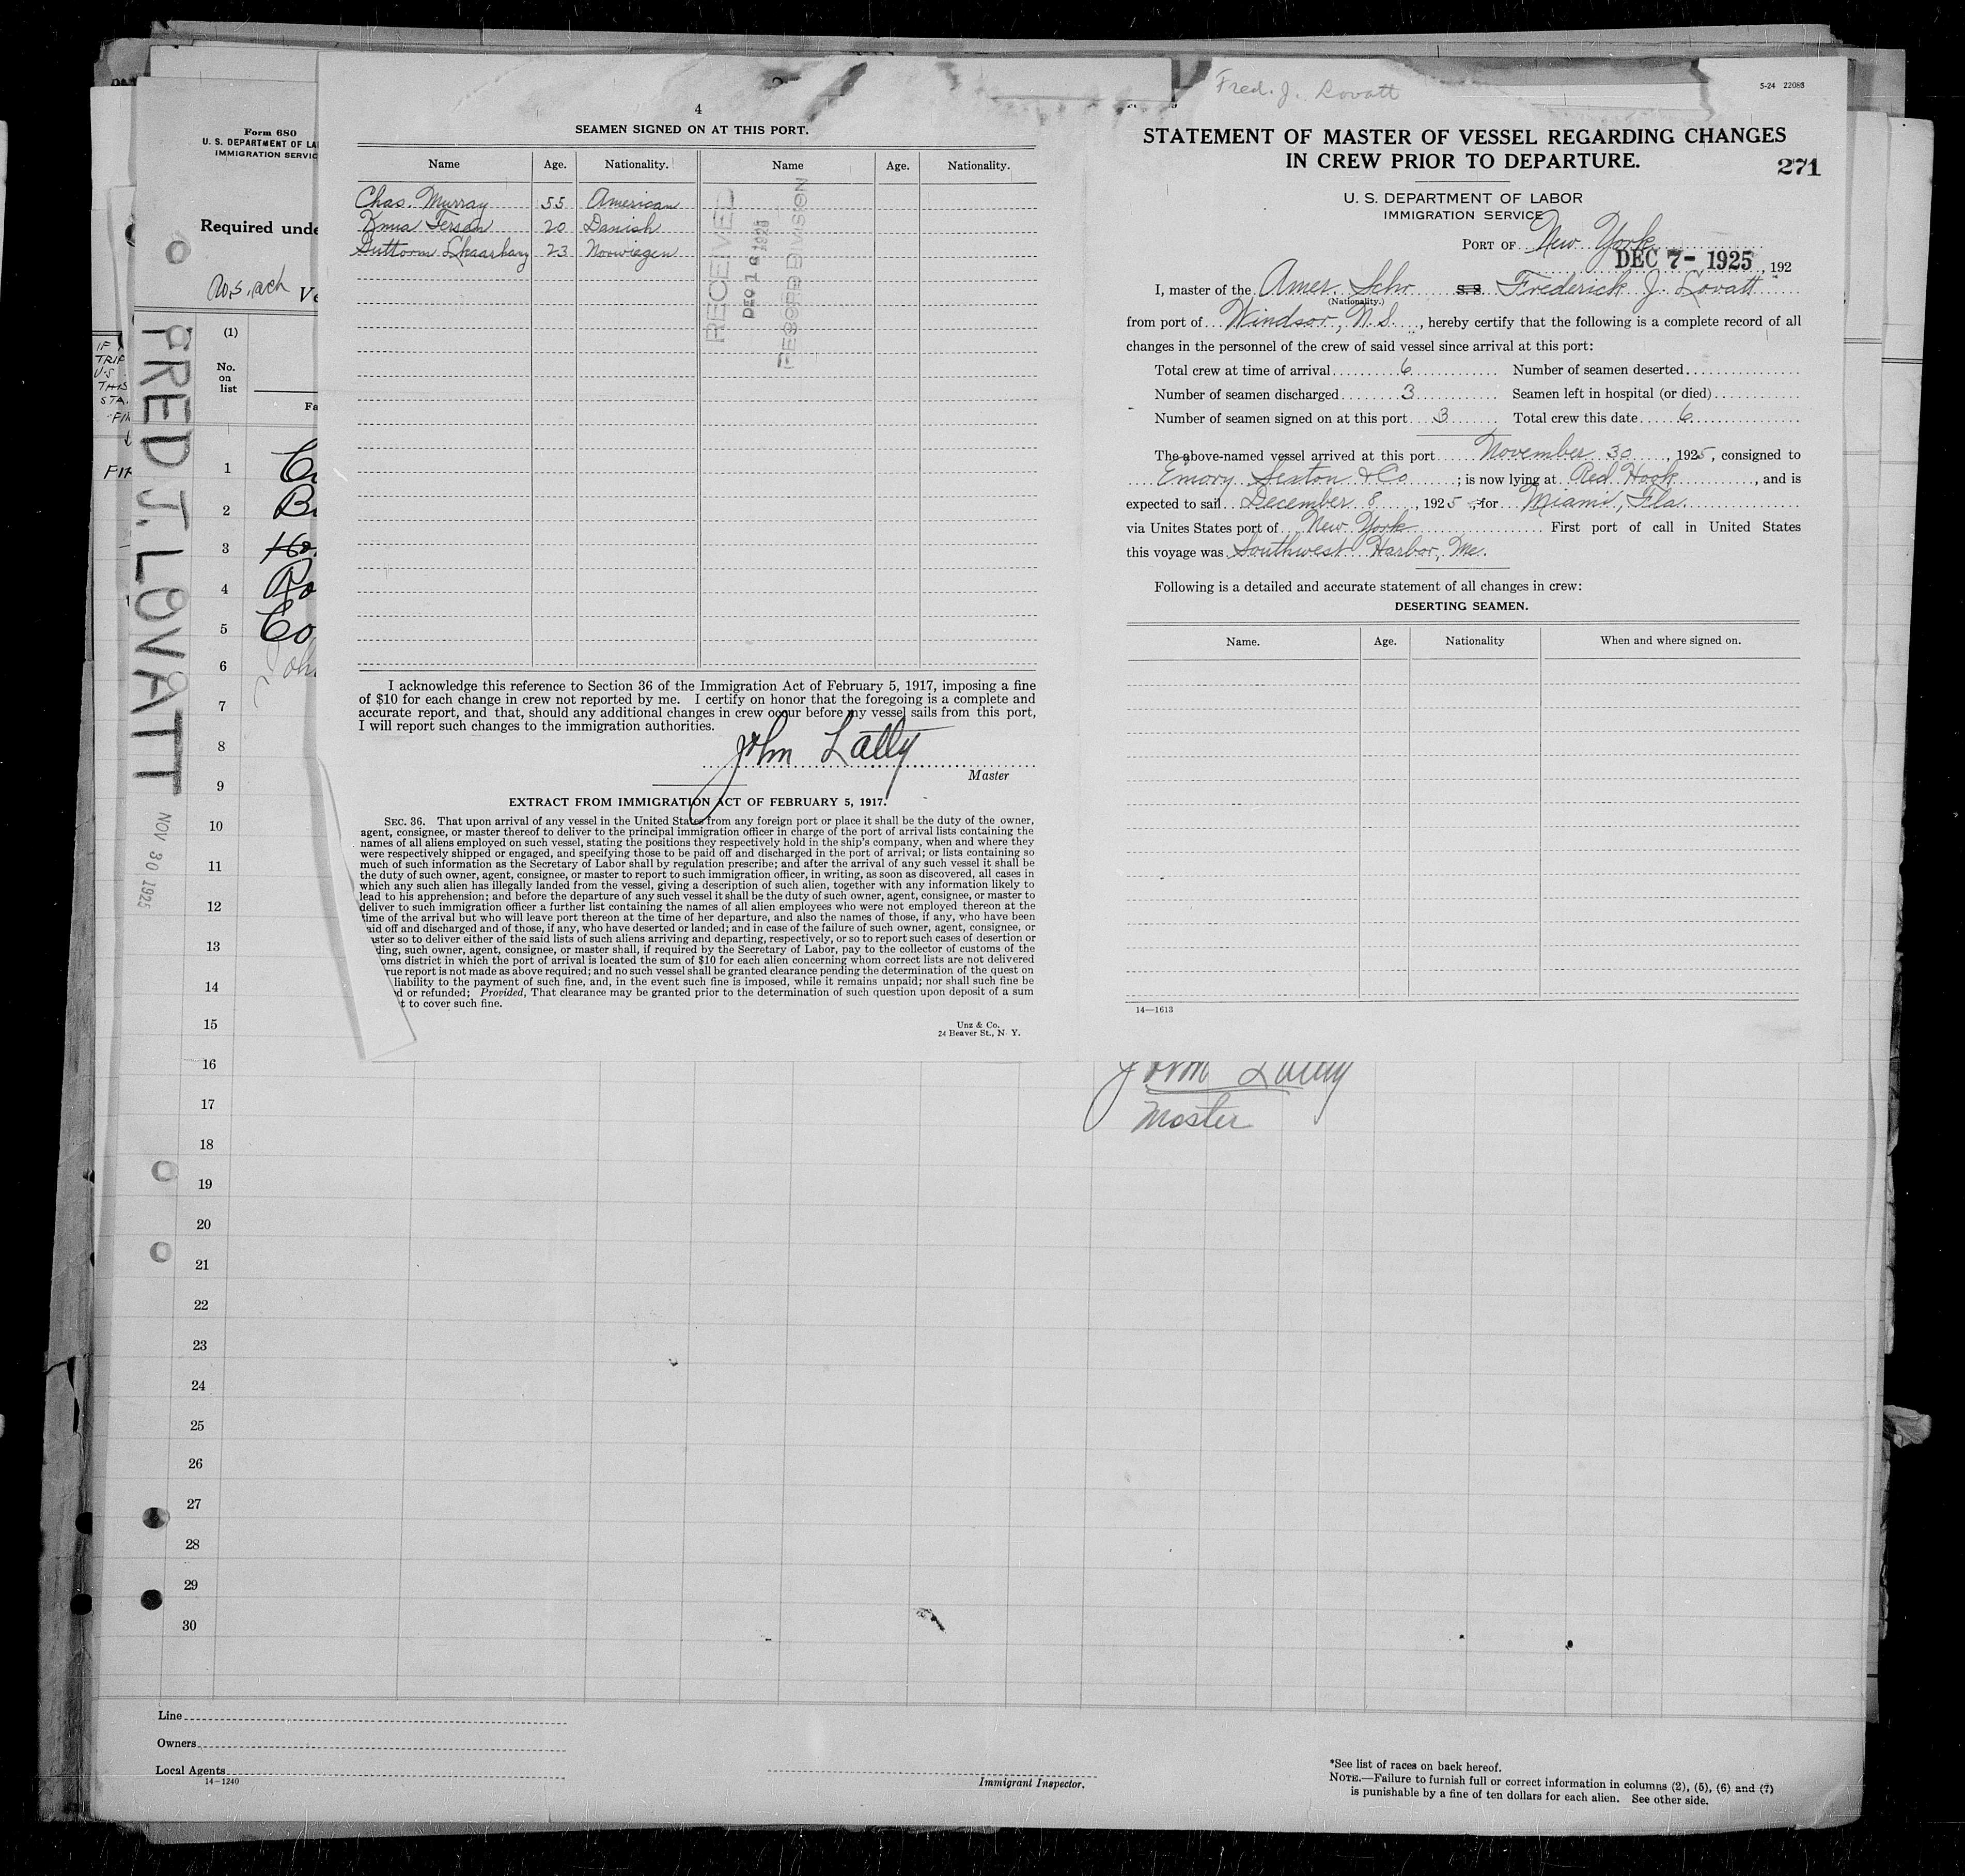 Form 680
U. S. DEPARTMENT OF LA
IMMIGRATION SERVIC
Required unde
(1)
No.
on
list
Fa
FRED J. LOVATT
NOV 30 1925
IF
TRIP
U·S
THIS
STA.
FIN
1
2
3
4
5
6
7
8
9
10
11
12
13
14
15
16
17
18
19
20
21
22
23
24
25
26
27
28
29
30
4
SEAMEN SIGNED ON AT THIS PORT.
Name Age. Nationality. Name Age. Nationality.
Chas. Murray 55 American
20 Danish
23 Norwiegen
RECEIVED
DEC 16 1925
RECORD DIVISION
I acknowledge this reference to Section 36 of the Immigration Act of February 5, 1917, imposing a fine
of $10 for each change in crew not reported by me. I certify on honor that the foregoing is a complete and
accurate report, and that, should any additional changes in crew occur before my vessel sails from this port,
I will report such changes to the immigration authorities.
John Lally
Master
EXTRACT FROM IMMIGRATION ACT OF FEBRUARY 5, 1917.
SEC. 36. That upon arrival of any vessel in the United States from any foreign port or place it shall be the duty of the owner,
agent, consignee, or master thereof to deliver to the principal immigration officer in charge of the port of arrival lists containing the
names of all aliens employed on such vessel, stating the positions they respectively hold in the ship's company, when and where they
were respectively shipped or engaged, and specifying those to be paid off and discharged in the port of arrival; or lists containing so
much of such information as the Secretary of Labor shall by regulation prescribe; and after the arrival of any such vessel it shall be
the duty of such owner, agent, consignee, or master to report to such immigration officer, in writing, as soon as discovered, all cases in
which any such alien has illegally landed from the vessel, giving a description of such alien, together with any information likely to
lead to his apprehension; and before the departure of any such vessel it shall be the duty of such owner, agent, consignee, or master to
deliver to such immigration officer a further list containing the names of all alien employees who were not employed thereon at the
time of the arrival but who will leave port thereon at the time of her departure, and also the names of those, if any, who have been
aid off and discharged and of those, if any, who have deserted or landed; and in case of the failure of such owner, agent, consignee, or
aster so to deliver either of the said lists of such aliens arriving and departing, respectively, or so to report such cases of desertion or
ding, such owner, agent, consignee, or master shall, if required by the Secretary of Labor, pay to the collector of customs of the
oms district in which the port of arrival is located the sum of $10 for each alien concerning whom correct lists are not delivered
rue report is not made as above required; and no such vessel shall be granted clearance pending the determination of the quest on
liability to the payment of such fine, and, in the event such fine is imposed, while it remains unpaid; nor shall such fine be
d or refunded; Provided, That clearance may be granted prior to the determination of such question upon deposit of a sum
t to cover such fine.
Unz & Co.
24 Beaver St., N. Y.
Fred. J. Lovatt
5-24 22088
STATEMENT OF MASTER OF VESSEL REGARDING CHANGES
IN CREW PRIOR TO DEPARTURE.
271
U. S. DEPARTMENT OF LABOR
IMMIGRATION SERVICE
PORT OF New York
DEC 7- 1925, 192
I, master of the Amer. Schr S.S. Frederick J. Lovatt
(Nationality.)
from port of Windsor, N.S., hereby certify that the following is a complete record of all
changes in the personnel of the crew of said vessel since arrival at this port:
Total crew at time of arrival 6 Number of seamen deserted
Number of seamen discharged 3 Seamen left in hospital (or died)
Number of seamen signed on at this port 3 Total crew this date 6
The above-named vessel arrived at this port November 30, 1925, consigned to
Emory Sexton & Co; is now lying at Red Hook, and is
expected to sail December 8, 1925, for Miami, Fla.
via Unites States port of New York First port of call in United States
this voyage was Southwest Harbor, Me.
Following is a detailed and accurate statement of all changes in crew:
DESERTING SEAMEN.
Name. Age. Nationality When and where signed on.
14—1613
John Lally
Master
Line
Owners
Local Agents
14-1240
Immigrant Inspector.
*See list of races on back hereof.
NOTE.—Failure to furnish full or correct information in columns (2), (5), (6) and (7)
is punishable by a fine of ten dollars for each alien. See other side.